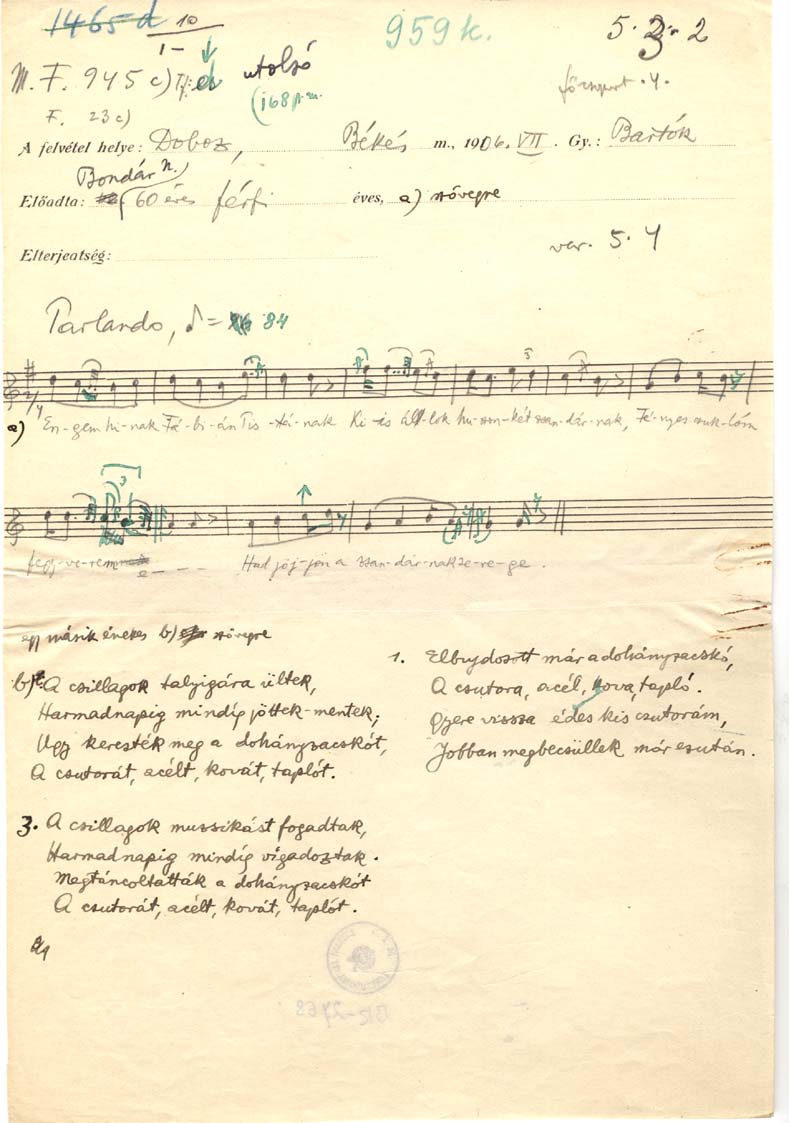 1465 d
10
1-
959 k.
5. 3. 2
M. F. 945 c) utolsó
(168
főcsoport . 4.
F. 23 c)
A felvétel helye: Doboz, Békés m., 1906. VII Gy.: Bartók
Bondár n.
Előadta: 60 éves férfi éves, a) szövegre
Elterjeatség: var. 5. 4
Parlando, ♪ = 84
a) En-gem hí-nak Fá-bi-án Pis-tá-nak Ki-is ál-lok hu-szon-két zsan-dár-nak, Fé-nyes
fegy-ve-rem Had jöj-jön a zsan-dár-nak ze-re-ge.
egy másik énekes b) szövegre
b) A csillagok talyigára ültek,
Harmadnapig mindíg jöttek-mentek;
Ugy keresték meg a dohányzacskót,
A csutorát, acélt, kovát, taplót.
3. A csillagok muzsikást fogadtak,
Harmadnapig mindíg vígadoztak.
Megtáncoltatták a dohányzacskót
A csutorát, acélt, kovát, taplót.
1. Elbujdosott már a dohányzacskó,
A csutora, acél, kova, tapló.
Gyere vissza édes kis csutorám,
Jobban megbecsüllek már ezután.